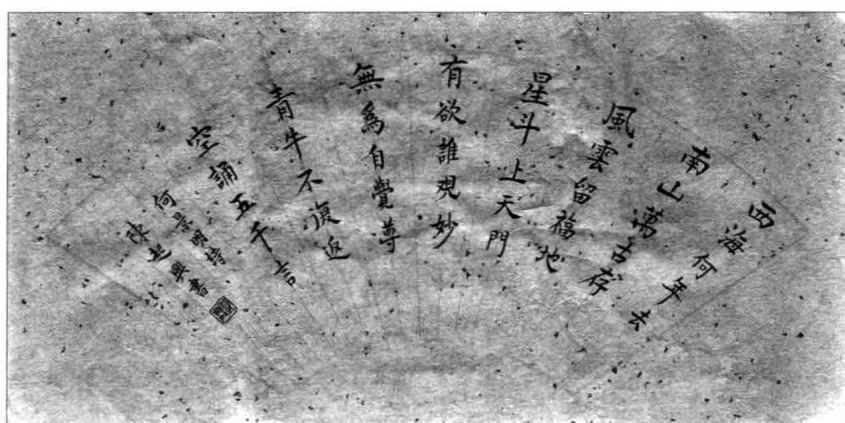 西海何年去
南山萬古存
風雲留福地
星斗上天門
有欲誰觀妙
無為自覺尊
青牛不復返
空誦五千言
何景明詩
陳志興書